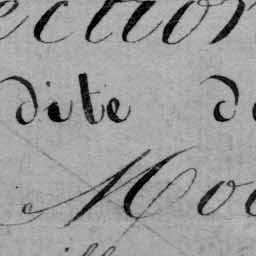 ection
dite d
Mo